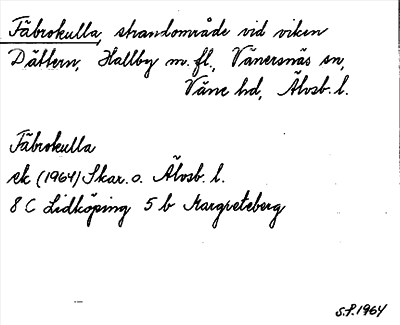 Fäbrokulla, strandområde vid viken
Dättern, Hallby m.fl., Vänersnäs sn,
Väne hd, Älvsb. l.
Fäbrokulla
ek (1964) Skar. o. Älvsb. l.
8 C Lidköping 5 b Margreteberg
S.F. 1964